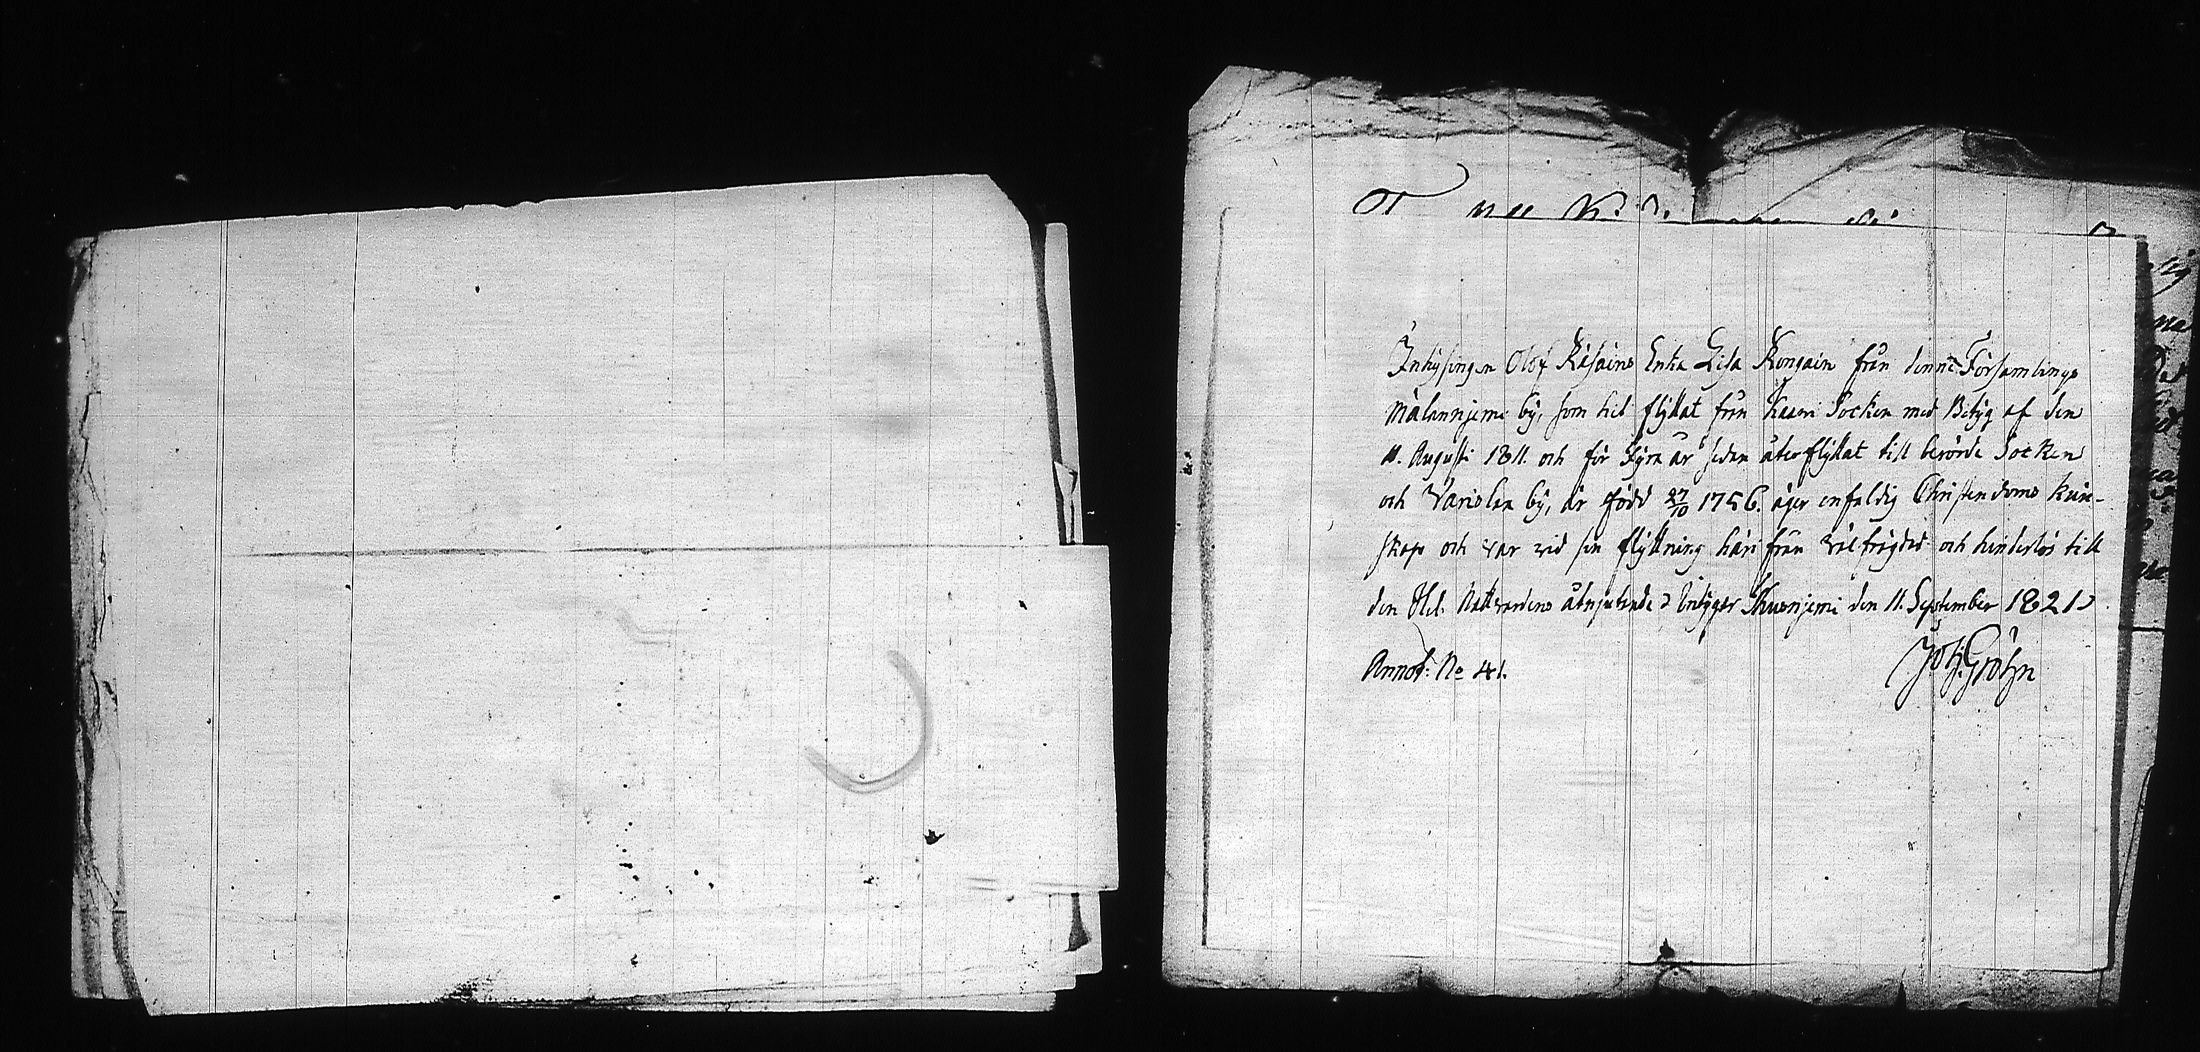 Inhysingen Olof Räsäins Enka Lisa Kongain från denne Församlings
Målannjemi by, som hit flyttat från Kaavi Socken med Betyg af den
11. Augusti 1811. och för fyra år sedan återflyttat till berörde Socken
och Varislax by, är född 27/10 1756. äger enfaldig Christendoms kun-
skap och var vid sin flyttning härifrån välfrägdad och hinderlös till
den Hel. Nattvardens åtnjutande; betygar Kuusjemi den 11. September 1821.
Annot: No 41. Joh: Gröhn